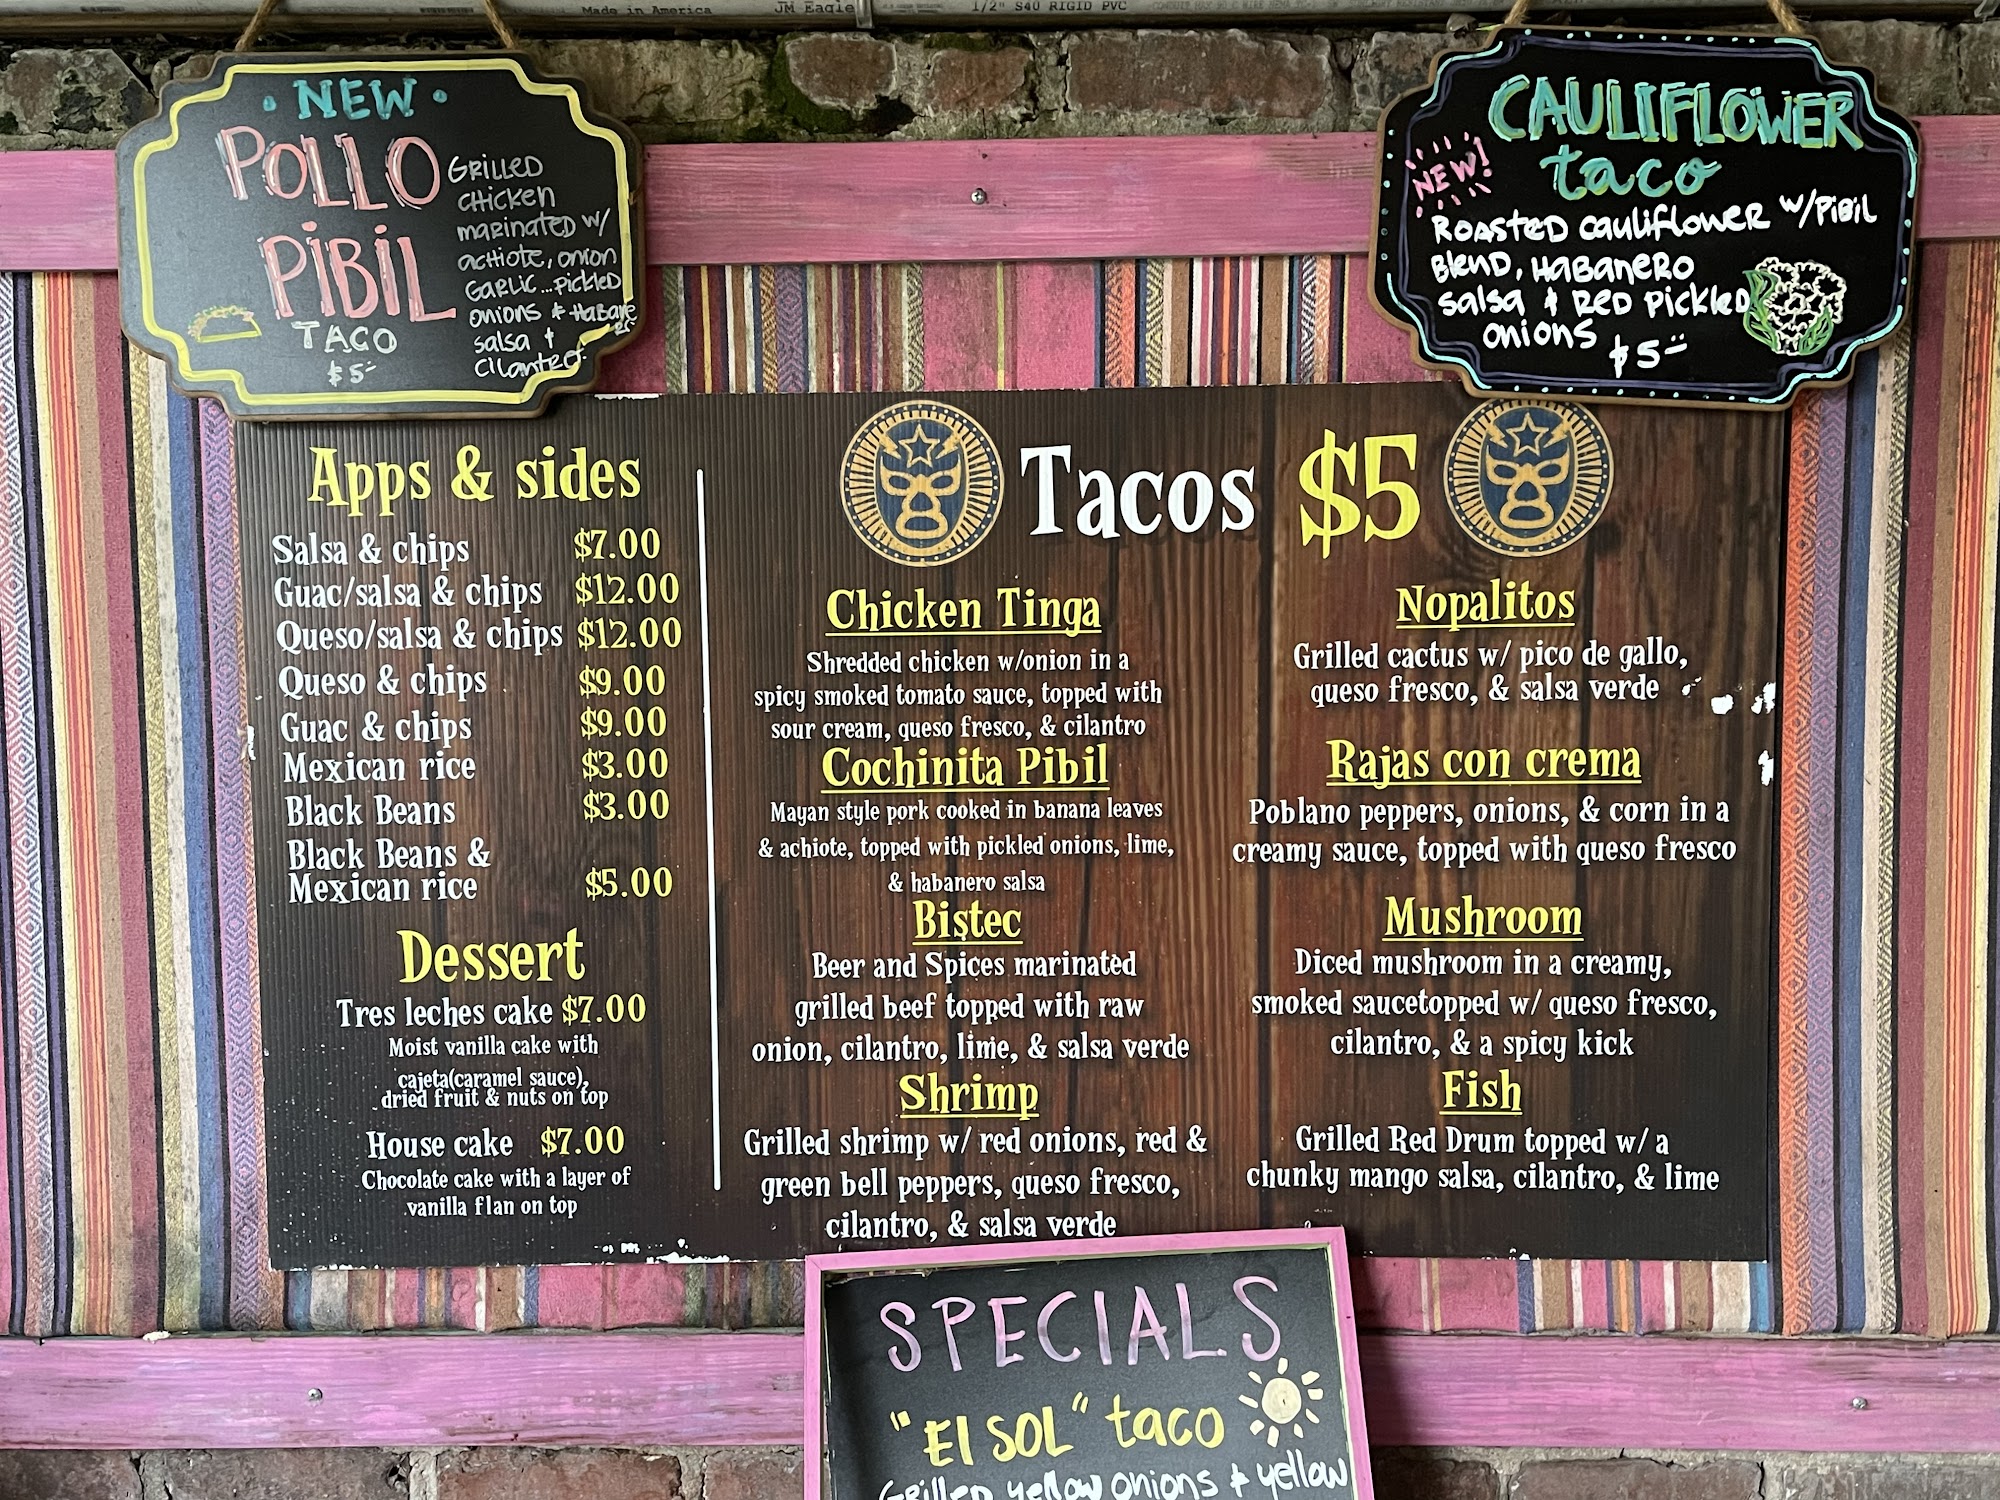 Made in America
JM Eagle
1/2" S40 RIGID PVC
NEW
POLLO
PIBIL
TACO
$5-
GRILLED
CHICKEN
MARINATED W/
ACHIOTE, ONION
GARLIC...PICKLED
ONIONS & HABANE
RO
SALSA &
CILANTRO
CAULIFLOWER
taco
NEW!
ROASTED CAULIFLOWER W/PIBIL
BLEND, HABANERO
SALSA & RED PICKLED
ONIONS
$5-
Apps & sides
Salsa & chips $7.00
Guac/salsa & chips $12.00
Queso/salsa & chips $12.00
Queso & chips $9.00
Guac & chips $9.00
Mexican rice $3.00
Black Beans $3.00
Black Beans &
Mexican rice $5.00
Dessert
Tres leches cake $7.00
Moist vanilla cake with
cajeta(caramel sauce),
dried fruit & nuts on top
House cake $7.00
Chocolate cake with a layer of
vanilla flan on top
Tacos $5
Chicken Tinga
Shredded chicken w/onion in a
spicy smoked tomato sauce, topped with
sour cream, queso fresco, & cilantro
Cochinita Pibil
Mayan style pork cooked in banana leaves
& achiote, topped with pickled onions, lime,
& habanero salsa
Bistec
Beer and Spices marinated
grilled beef topped with raw
onion, cilantro, lime, & salsa verde
Shrimp
Grilled shrimp w/ red onions, red &
green bell peppers, queso fresco,
cilantro, & salsa verde
Nopalitos
Grilled cactus w/ pico de gallo,
queso fresco, & salsa verde
Rajas con crema
Poblano peppers, onions, & corn in a
creamy sauce, topped with queso fresco
Mushroom
Diced mushroom in a creamy,
smoked saucetopped w/ queso fresco,
cilantro, & a spicy kick
Fish
Grilled Red Drum topped w/ a
chunky mango salsa, cilantro, & lime
SPECIALS
"El SOL" taco
GRILLED yellow onions & yellow